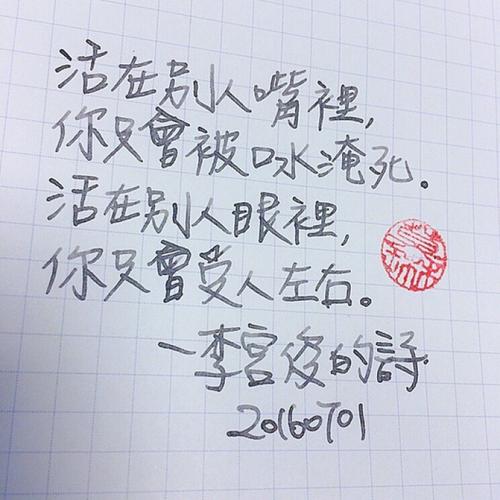 活在別人嘴裡,
你只會被口水淹死。
活在別人眼裡,
你只會受人左右。
－李宮俊的詩
20160701